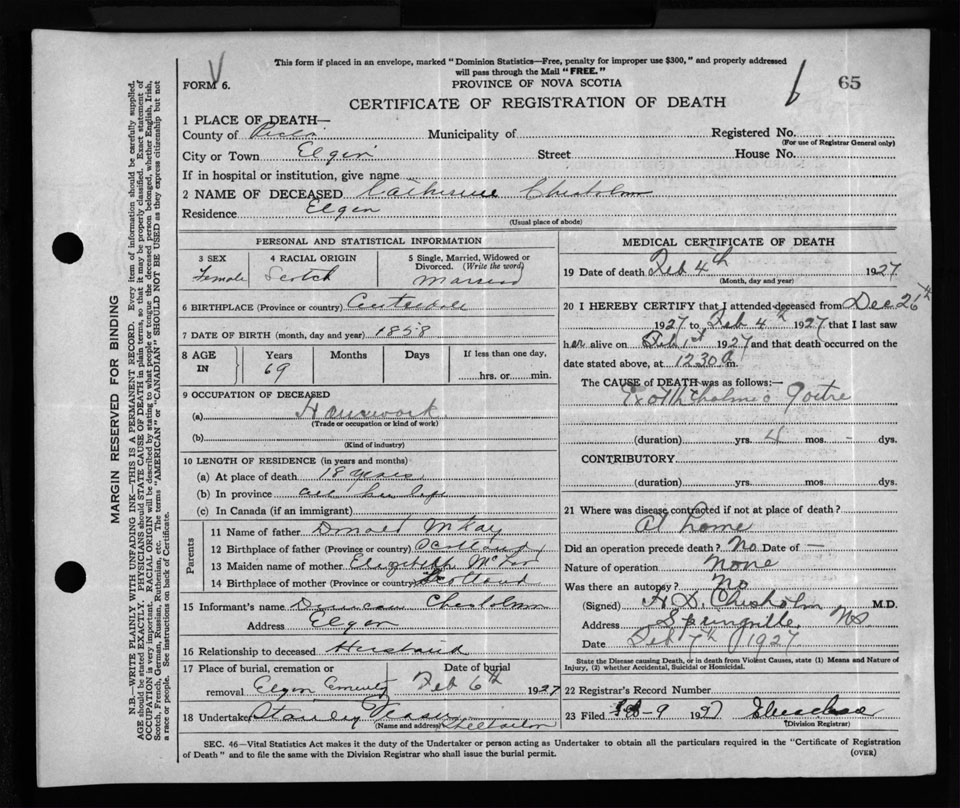 This form if placed in an envelope, marked "Dominion Statistics—Free, penalty for improper use $300," and properly addressed
will pass through the Mail "FREE."
FORM 6.
PROVINCE OF NOVA SCOTIA
6
65
CERTIFICATE OF REGISTRATION OF DEATH
MARGIN RESERVED FOR BINDING
N.B.—WRITE PLAINLY WITH UNFADING INK—THIS IS A PERMANENT RECORD. Every item of information should be carefully supplied.
AGE should be stated EXACTLY. PHYSICIANS should STATE CAUSE OF DEATH in plain terms, so that it may be properly classified. Exact statement of
OCCUPATION is very important. RACIAL ORIGIN will be described by stating to what people or tongue the deceased person belonged, whether English, Irish,
Scotch, French, German, Russian, Ruthenian, etc. The terms "AMERICAN" or "CANADIAN" SHOULD NOT BE USED as they express citizenship but not
a race or people. See instructions on back of Certificate.
1 PLACE OF DEATH—
County of Municipality of Registered No.
(For use of Registrar General only)
City or Town Elgin Street House No.
If in hospital or institution, give name
2 NAME OF DECEASED Catherine Chesholm
Residence Elgin
(Usual place of abode)
PERSONAL AND STATISTICAL INFORMATION
3 SEX Female
4 RACIAL ORIGIN Scotch
5 Single, Married, Widowed or Divorced. (Write the word) Married
6 BIRTHPLACE (Province or country)
7 DATE OF BIRTH (month, day and year) 1858
8 AGE IN Years 69 Months Days If less than one day, hrs. or min.
9 OCCUPATION OF DECEASED
(a) Housework
(Trade or occupation or kind of work)
(b)
(Kind of industry)
10 LENGTH OF RESIDENCE (in years and months)
(a) At place of death 18 years
(b) In province all her life
(c) In Canada (if an immigrant)
Parents
11 Name of father Donald McKay
12 Birthplace of father (Province or country) Scotland
13 Maiden name of mother Elizabeth
14 Birthplace of mother (Province or country) Scotland
15 Informant's name Duncan Chesholm
Address Elgin
16 Relationship to deceased Husband
17 Place of burial, cremation or removal Elgin Date of burial Feb 6th 1927
18 Undertaker Stanley
(Name and address)
MEDICAL CERTIFICATE OF DEATH
19 Date of death Feb 4th 1927
(Month, day and year)
20 I HEREBY CERTIFY that I attended deceased from Dec 26th
1927 to Feb 4th 1927 that I last saw
her alive on Feb 1st 1927 and that death occurred on
date stated above, at 12.30 a m.
The CAUSE of DEATH was as follows:—
Goitre
(duration) yrs. 4 mos. - dys.
CONTRIBUTORY
(duration) yrs. mos. dys.
21 Where was disease contracted if not at place of death?
At home
Did an operation precede death? No Date of —
Nature of operation None
Was there an autopsy? No
(Signed) H.D. Chisholm M.D.
Address Springville NS
Date Feb 7th 1927
State the Disease causing Death, or in death from Violent Causes, state (1) Means and Nature of
Injury, (2) whether Accidental, Suicidal or Homicidal.
22 Registrar's Record Number
23 Filed 9 1927
(Division Registrar)
SEC. 46—Vital Statistics Act makes it the duty of the Undertaker or person acting as Undertaker to obtain all the particulars required in the "Certificate of Registration
of Death" and to file the same with the Division Registrar who shall issue the burial permit.
(OVER)